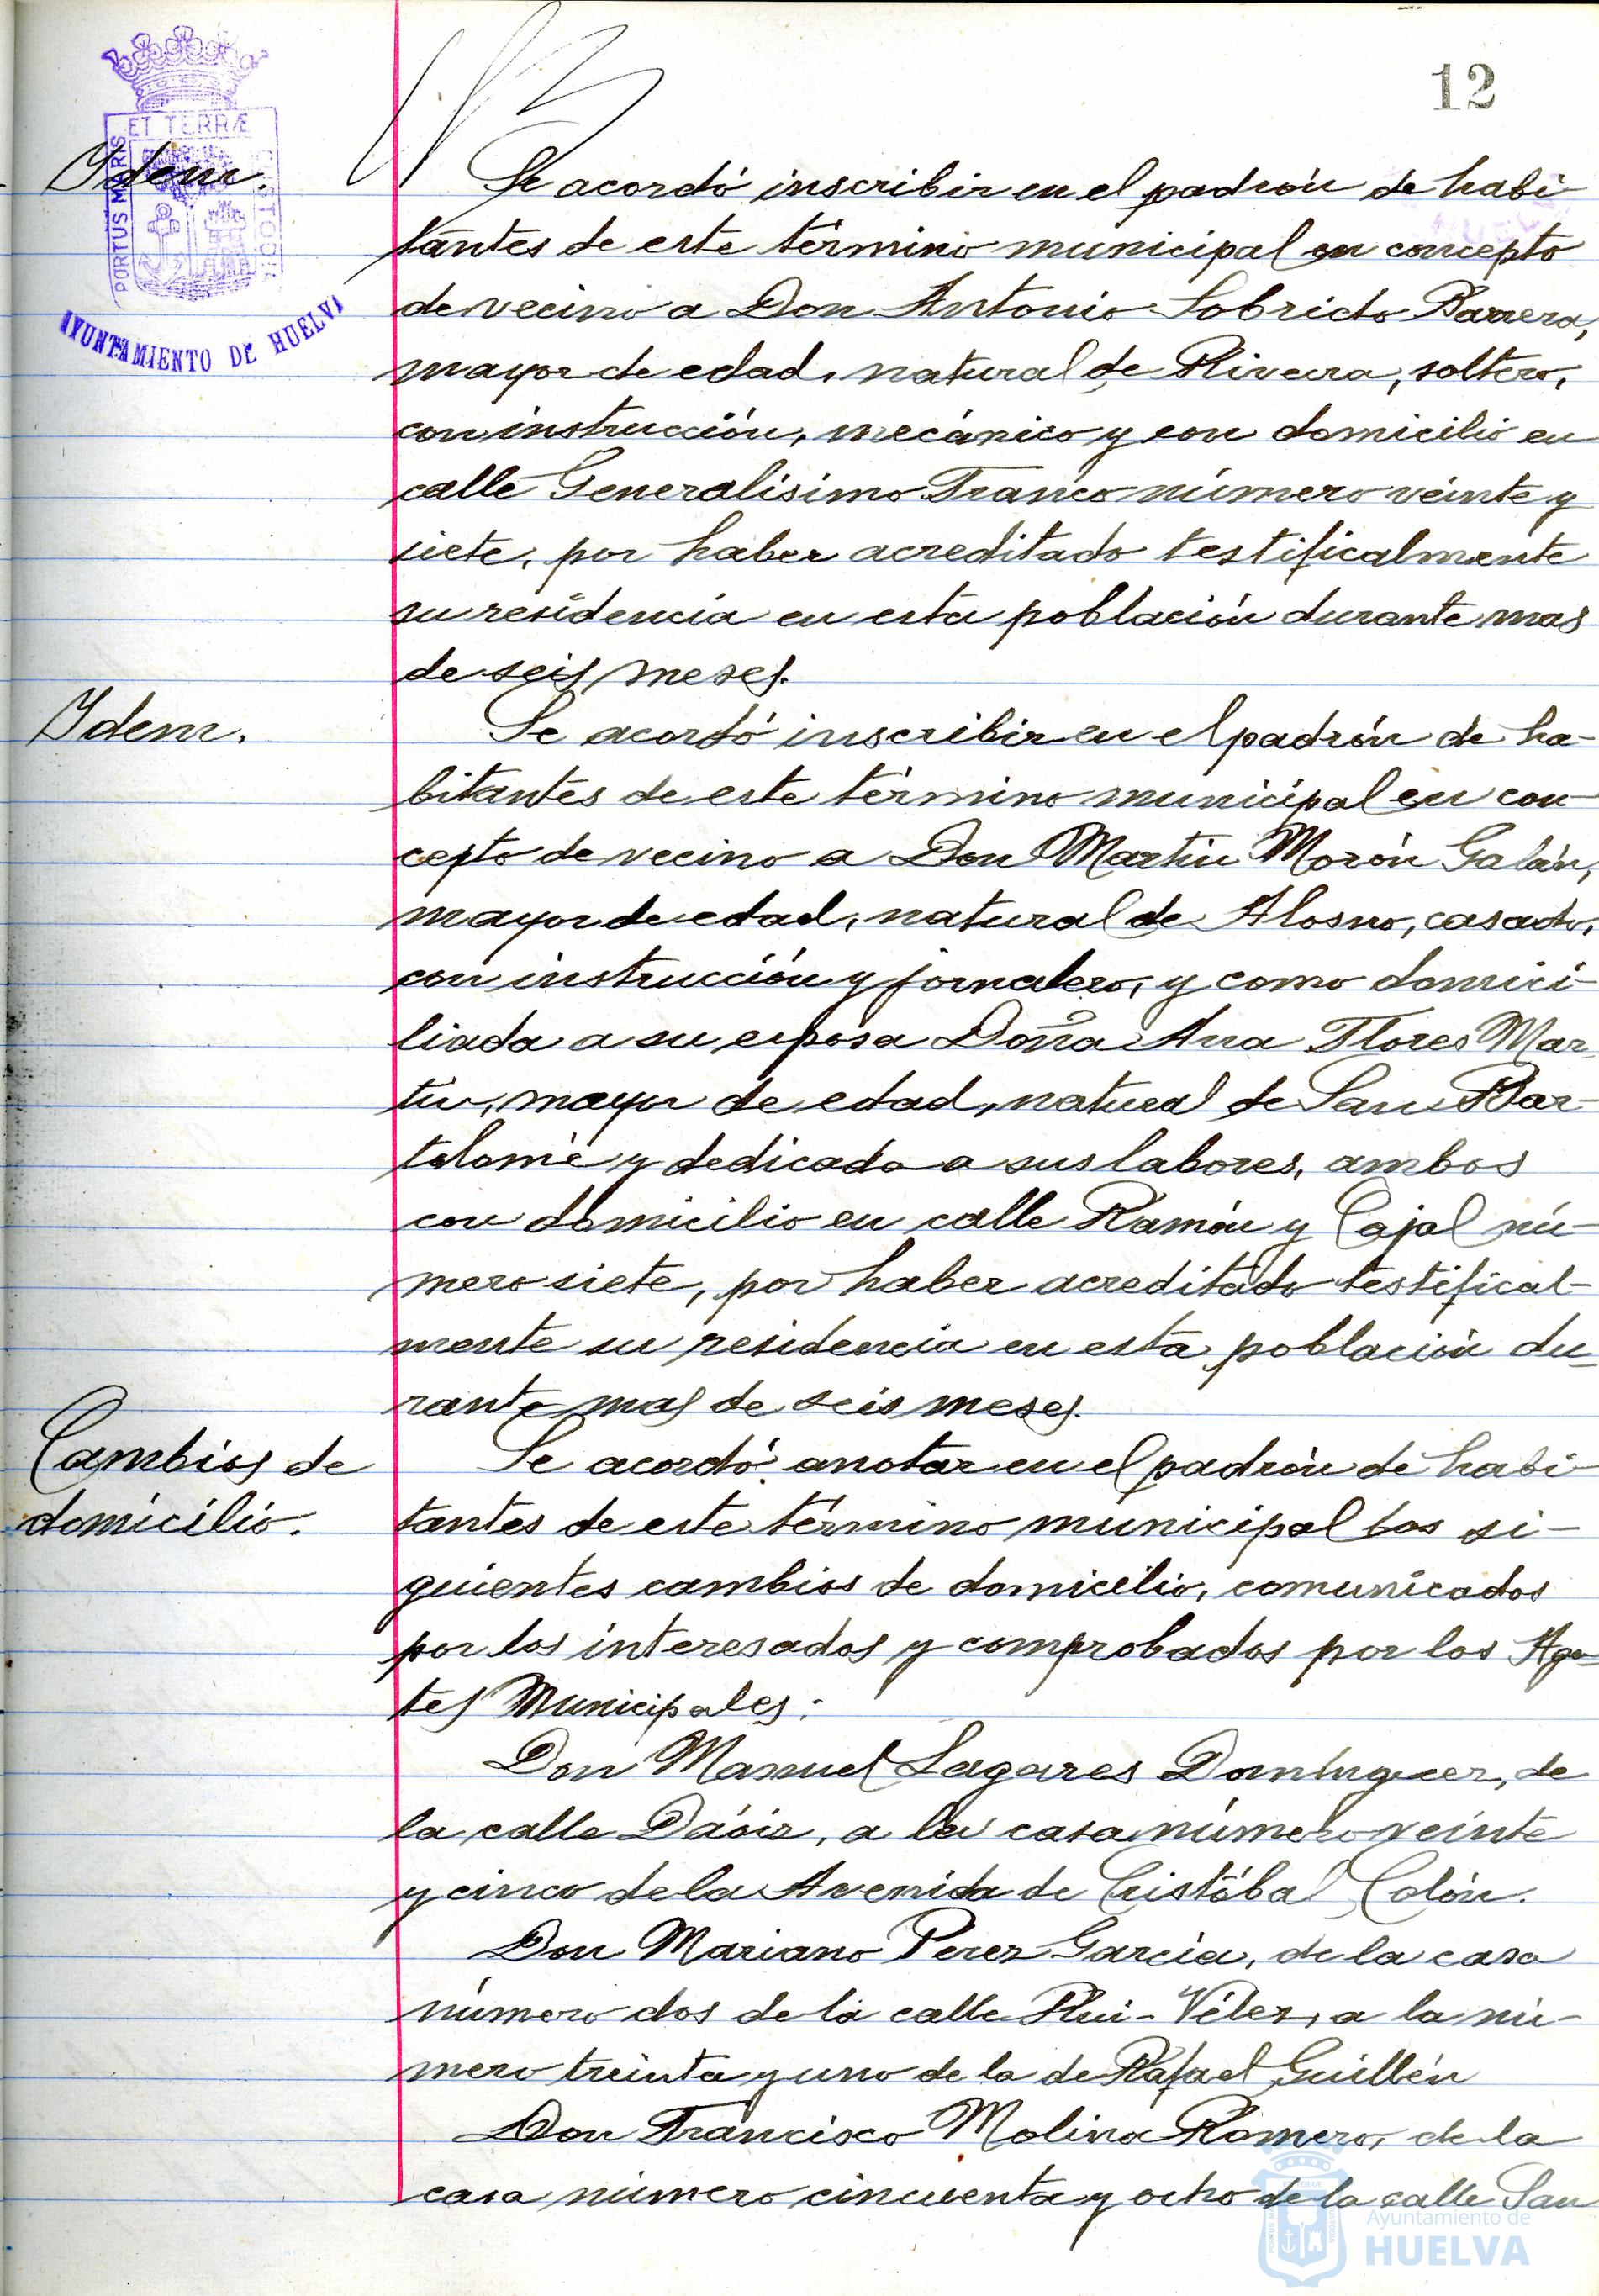 12
ET TERRÆ
PORTUS MARIS
CUSTODIA
AYUNTAMIENTO DE HUELVA
Idem.
Se acordó inscribir en el padrón de habi-
tantes de este término municipal en concepto
de vecino a Don Antonio Sobrido Barrera,
mayor de edad, natural de Riveira, soltero,
con instrucción, mecánico y con domicilio en
calle Generalisimo Franco número veinte y
siete, por haber acreditado testificalmente
su residencia en esta población durante mas
de seis meses.
Idem.
Se acordó inscribir en el padrón de ha-
bitantes de este término municipal en con-
cepto de vecino a Don Martín Morón Galán,
mayor de edad, natural de Alosno, casado,
con instrucción y jornalero, y como domici-
liada a su esposa Doña Ana Flores Mar-
tín, mayor de edad, natural de San Bar-
tolomé y dedicada a sus labores, ambos
con domicilio en calle Ramón y Cajal nú-
mero siete, por haber acreditado testifical-
mente su residencia en esta población du-
rante mas de seis meses.
Cambios de
domicilio.
Se acordó anotar en el padrón de habi-
tantes de este término municipal los si-
guientes cambios de domicilio, comunicados
por los interesados y comprobados por los Agen-
tes Municipales:
Don Manuel Lagares Dominguez, de
la calle Dáoiz, a la casa número veinte
y cinco de la Avenida de Cristóbal Colón.
Don Mariano Perez García, de la casa
número dos de la calle Rui-Vélez, a la nú-
mero treinta y uno de la de Rafael Guillén
Don Francisco Molina Romero, de la
casa número cincuenta y ocho de la calle San
Ayuntamiento de
HUELVA